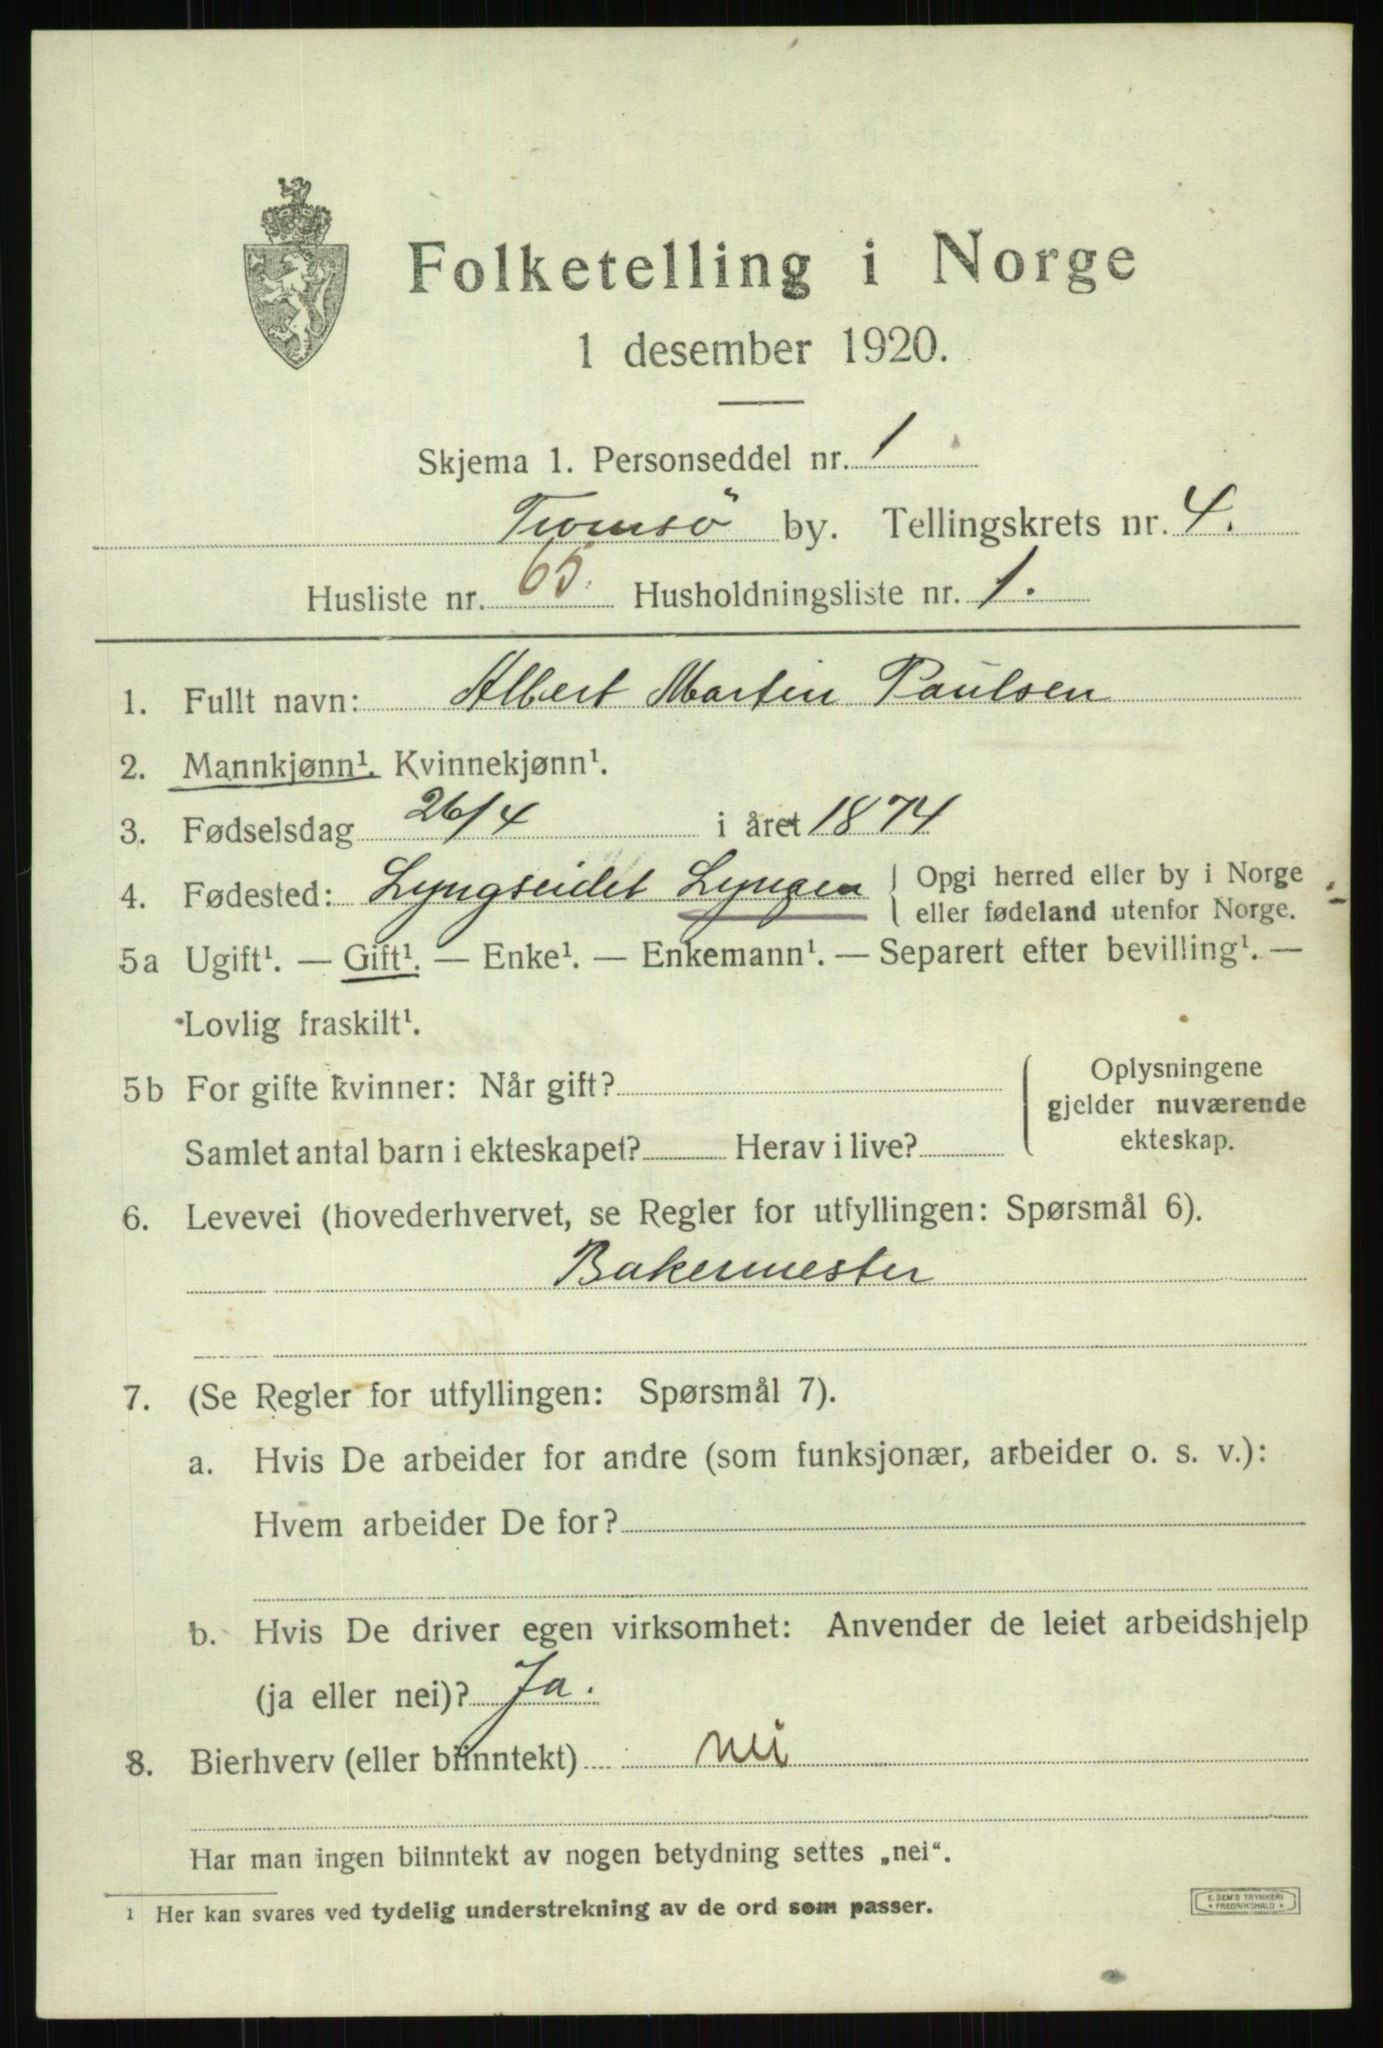 Folketelling i Norge
1 desember 1920.
Skjema 1. Personseddel nr. 1
Tromsö by. Tellingskrets nr. 4.
Husliste nr. 65. Husholdningsliste nr. 1.
1. Fullt navn: Albert Martin Paulsen
2. Mannkjønn¹. Kvinnekjønn¹.
3. Fødselsdag 26/4 i året 1874
4. Fødested: Lyngseidet Lyngen { Opgi herred eller by i Norge
eller fødeland utenfor Norge.
5a Ugift¹. — Gift¹. — Enke¹. — Enkemann¹. — Separert efter bevilling¹. —
Lovlig fraskilt¹.
5b For gifte kvinner: Når gift?
Samlet antal barn i ekteskapet? Herav i live?
Oplysningene
gjelder nuværende
ekteskap.
6. Levevei (hovederhvervet, se Regler for utfyllingen: Spørsmål 6).
Bakermester
7. (Se Regler for utfyllingen: Spørsmål 7).
a. Hvis De arbeider for andre (som funksjonær, arbeider o. s. v.):
Hvem arbeider De for?
b. Hvis De driver egen virksomhet: Anvender de leiet arbeidshjelp
(ja eller nei)? Ja.
8. Bierhverv (eller biinntekt) nei
Har man ingen biinntekt av nogen betydning settes „nei“.
¹ Her kan svares ved tydelig understrekning av de ord som passer.
E. SEM'S TRYKKERI
* FREDRIKSHALD *